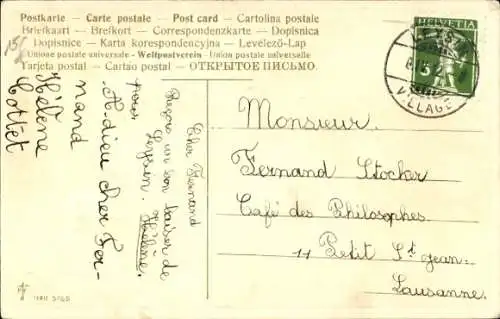 Postkarte - Carte postale - Post card - Cartolina postale
Briefkaart - Brefkort - Correspondenzkarte - Dopisnica
Dopisnice - Karta korespondencyjna - Levelező-Lap
Unione postale universale - Weltpostverein - Union postale universelle
Tarjeta postal - Cartao postal - ОТКРЫТОЕ ПИСЬМО.
HELVETIA
5
VILLAGE
Cher Fernand
Reçois un bon baiser de
Leysin. Hélène.
A-dieu cher Fer-
nand
Hélène
Cottet
Monsieur.
Fernand Stocker
Café des Philosophes
11 Petit St Jean-
Lausanne.